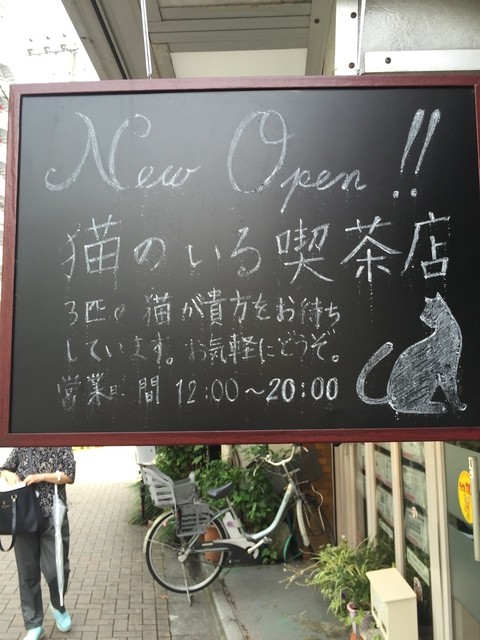 New Open!!
猫のいる喫茶店
3匹の猫が貴方をお待ち
しています。お気軽にどうぞ。
営業時間 12:00～20:00